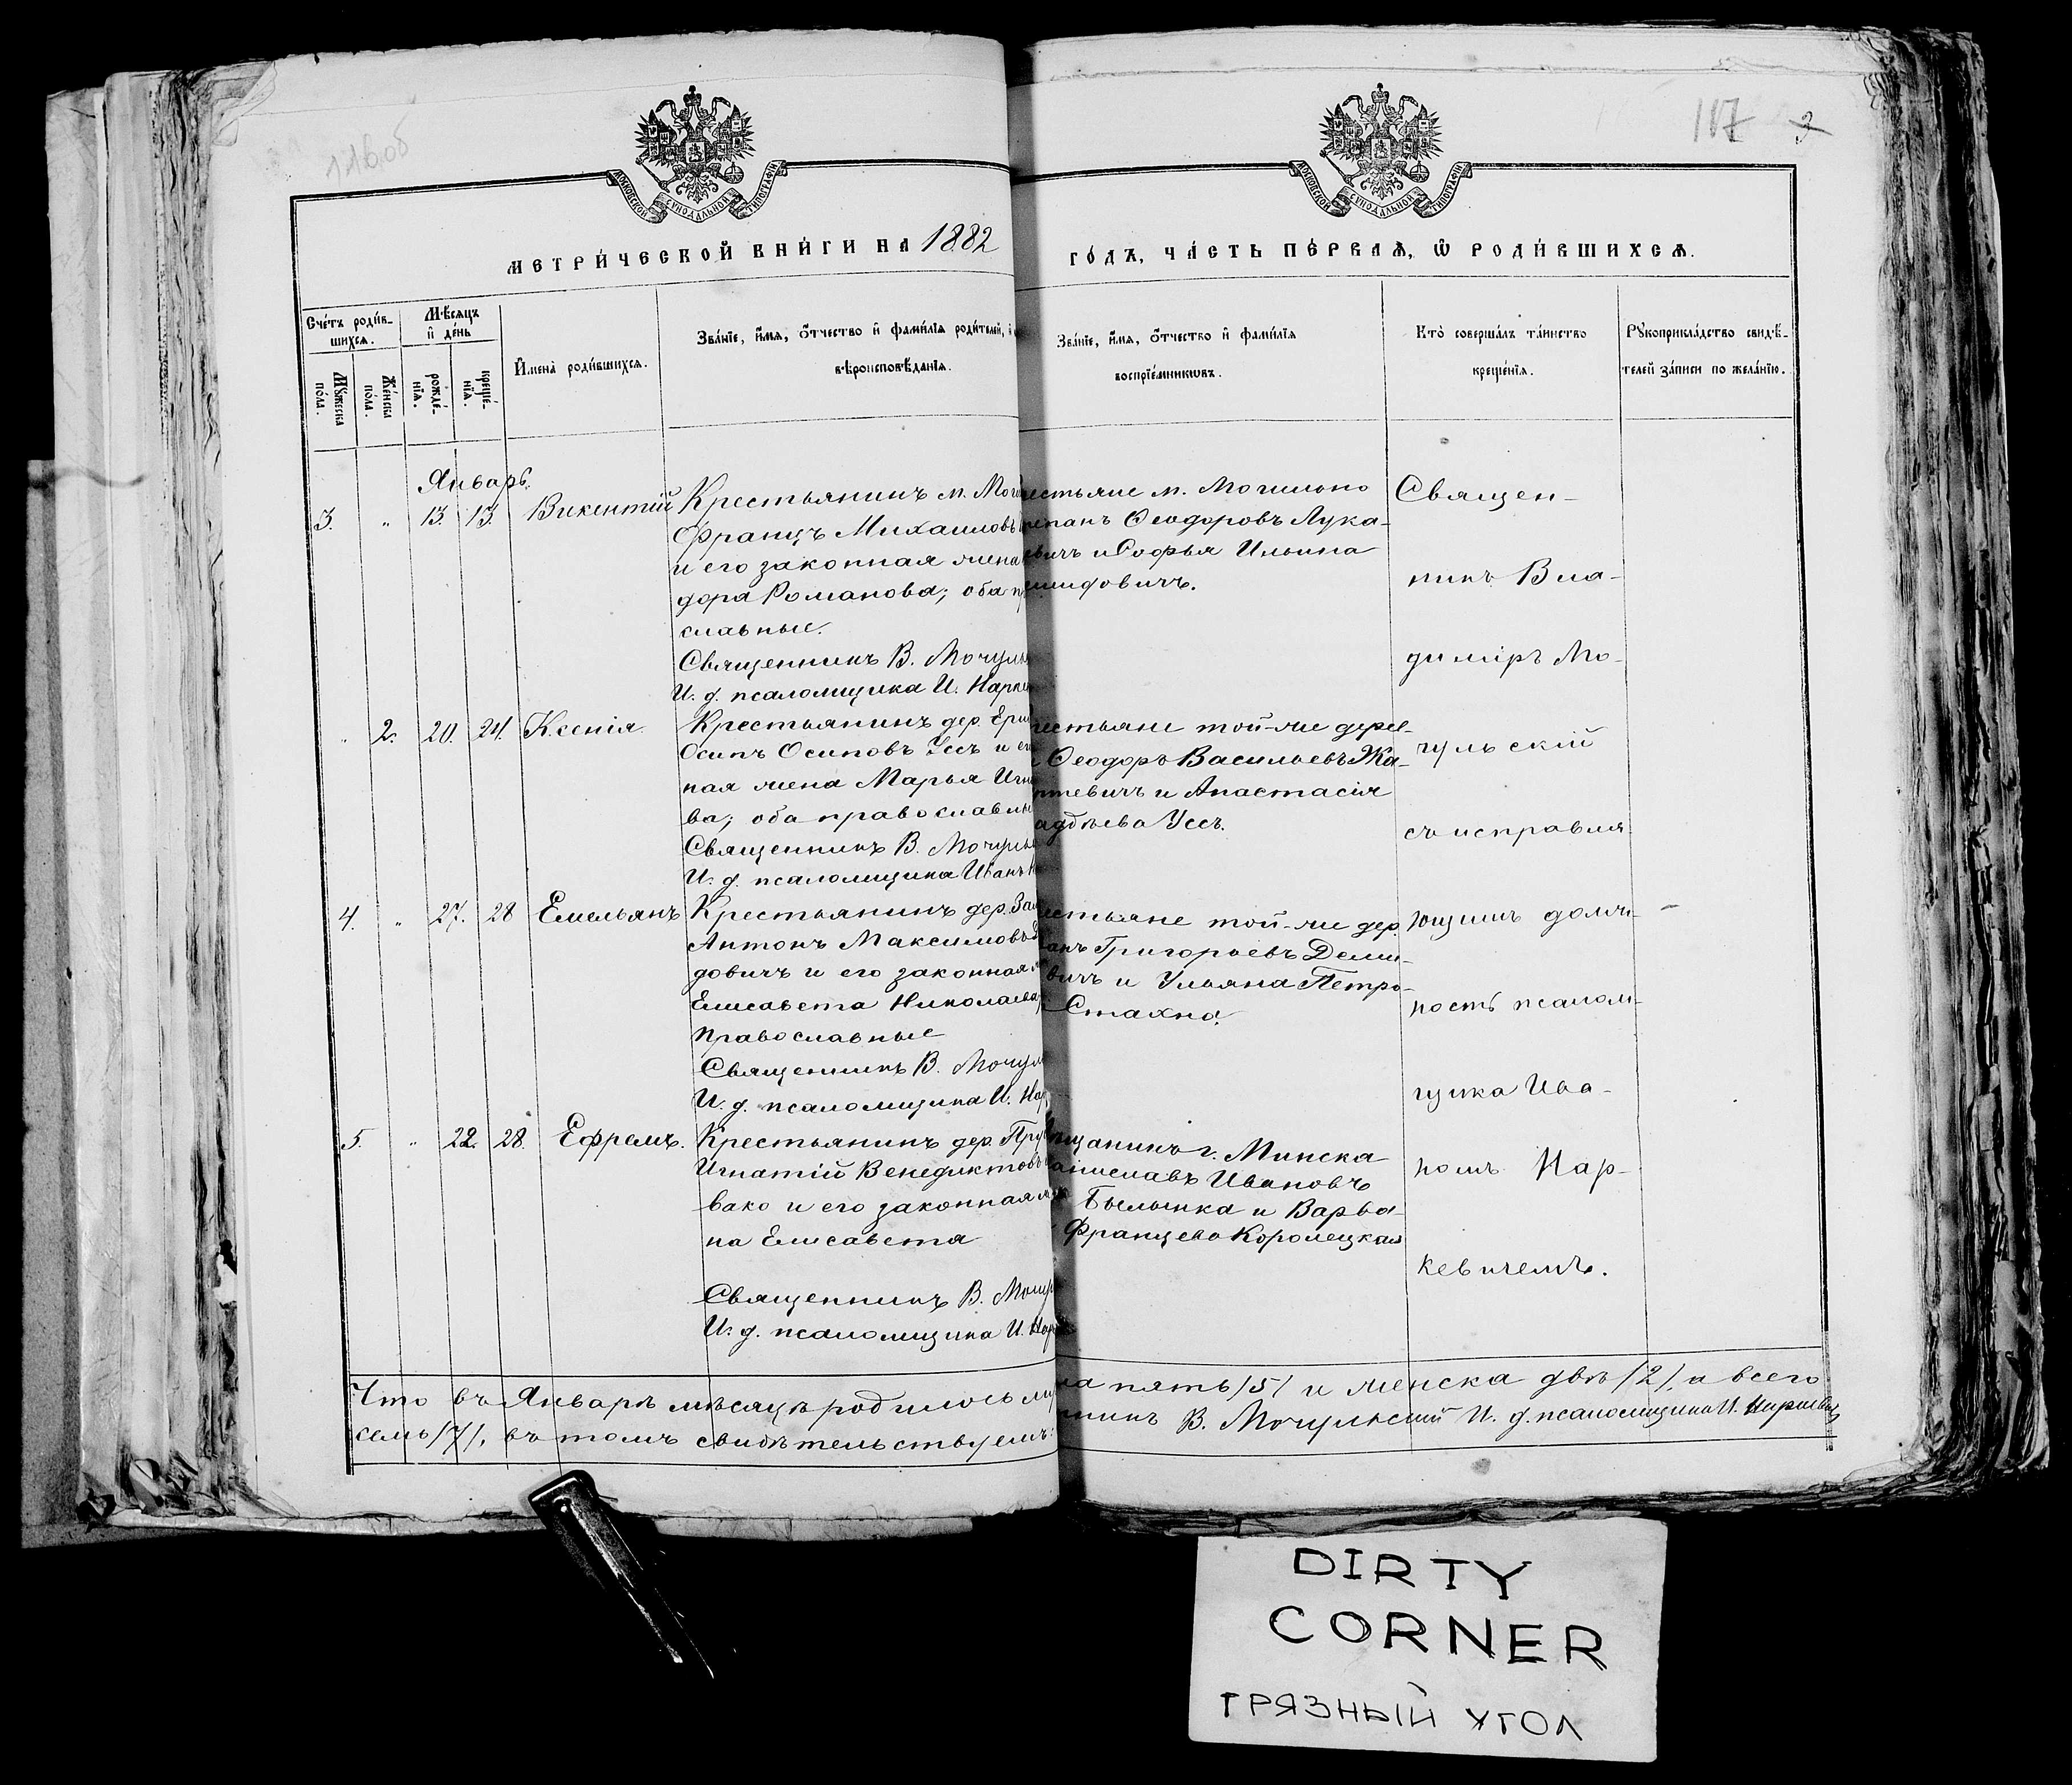 116об
117 3
МОСКОВСКОЙ СУНОДАЛЬНОЙ ТИПОГРАФІИ
МОСКОВСКОЙ СУНОДАЛЬНОЙ ТИПОГРАФІИ
МЕТРИ́ЧЕСКОЙ КНИ́ГИ НА 1882
ГО́ДЪ, ЧА́СТЬ ПЕ́РВАѦ, Ѡ РОДИ́ВШИХСѦ.
Сче́тъ роди́в-
шихсѧ.
Мꙋ́жеска
по́ла.
Же́нска
по́ла.
Мѣ́сѧцъ
и҆ де́нь
рожде́-
нїѧ.
креще́-
нїѧ.
И҆мена̀ роди́вшихсѧ.
Зва́нїе, и҆́мѧ, ѻ҆́тчество и҆ фамі́лїѧ роди́телей, и҆
вѣроисповѣ́данїѧ.
Зва́нїе, и҆́мѧ, ѻ҆́тчество и҆ фамі́лїѧ
воспрїе́мникѡвъ.
Кто̀ соверша́лъ та́инство
креще́нїѧ.
Рꙋкоприкла́дство свидѣ́-
телей за́писи по жела́нїю.
Январь.
3. " 13. 13. Викентій
Крестьянинъ м. Моги
Францъ Михаиловъ
и его законная жена
дора Романова; оба пр
славные.
Священникъ В. Мочуль
И. д. псаломщика И. Нарк
естьяне м. Могильно
тепанъ Ѳеодоровъ Лука-
вичъ и Софья Ильина
мидовичъ.
" 2. 20. 24. Ксенія.
Крестьянинъ дер. Ери
Осипъ Осиповъ Уссъ и ег
ная жена Марья Игна
ва; оба православны
Священникъ В. Мочуль
И. д. псаломщика Иванъ Н
естьяне той-же дерев-
Ѳеодоръ Васильевъ Жа-
тевичъ и Анастасія
адѣева Уссъ.
4. " 27. 28 Емельянъ
Крестьянинъ дер. Зал
Антонъ Максимовъ Де
довичъ и его законная ж
Елисавета Николаева
православные
Священникъ В. Мочул
И. д. псаломщика И. Нар
естьяне той-же дер.
анъ Григорьевъ Деми-
вичъ и Ульяна Петро-
Стахно.
5. " 22. 28. Ефремъ.
Крестьянинъ дер. Пру
Игнатій Венедиктовъ
вако и его законная же
на Елисавета
Священникъ В. Мочу
И. д. псаломщика И. Нар
щанинъ г. Минска
аниславъ Ивановъ
Былынка и Варва-
Францева Королецкая
Священ-
никъ Вла-
диміръ Мо-
чульскій
съ исправля-
ющимъ долж-
ность псалом-
щика Ива-
номъ Нар-
кевичемъ.
Что въ Январѣ мѣсяцѣ родилось му
ка пять /5/ и женска двѣ /2/, а всего
семь /7/, въ томъ свидѣтельствуемъ:
нникъ В. Мочульскій И. д. псаломщика И. Наркевичъ
DIRTY
CORNER
ГРЯЗНЫЙ УГОЛ